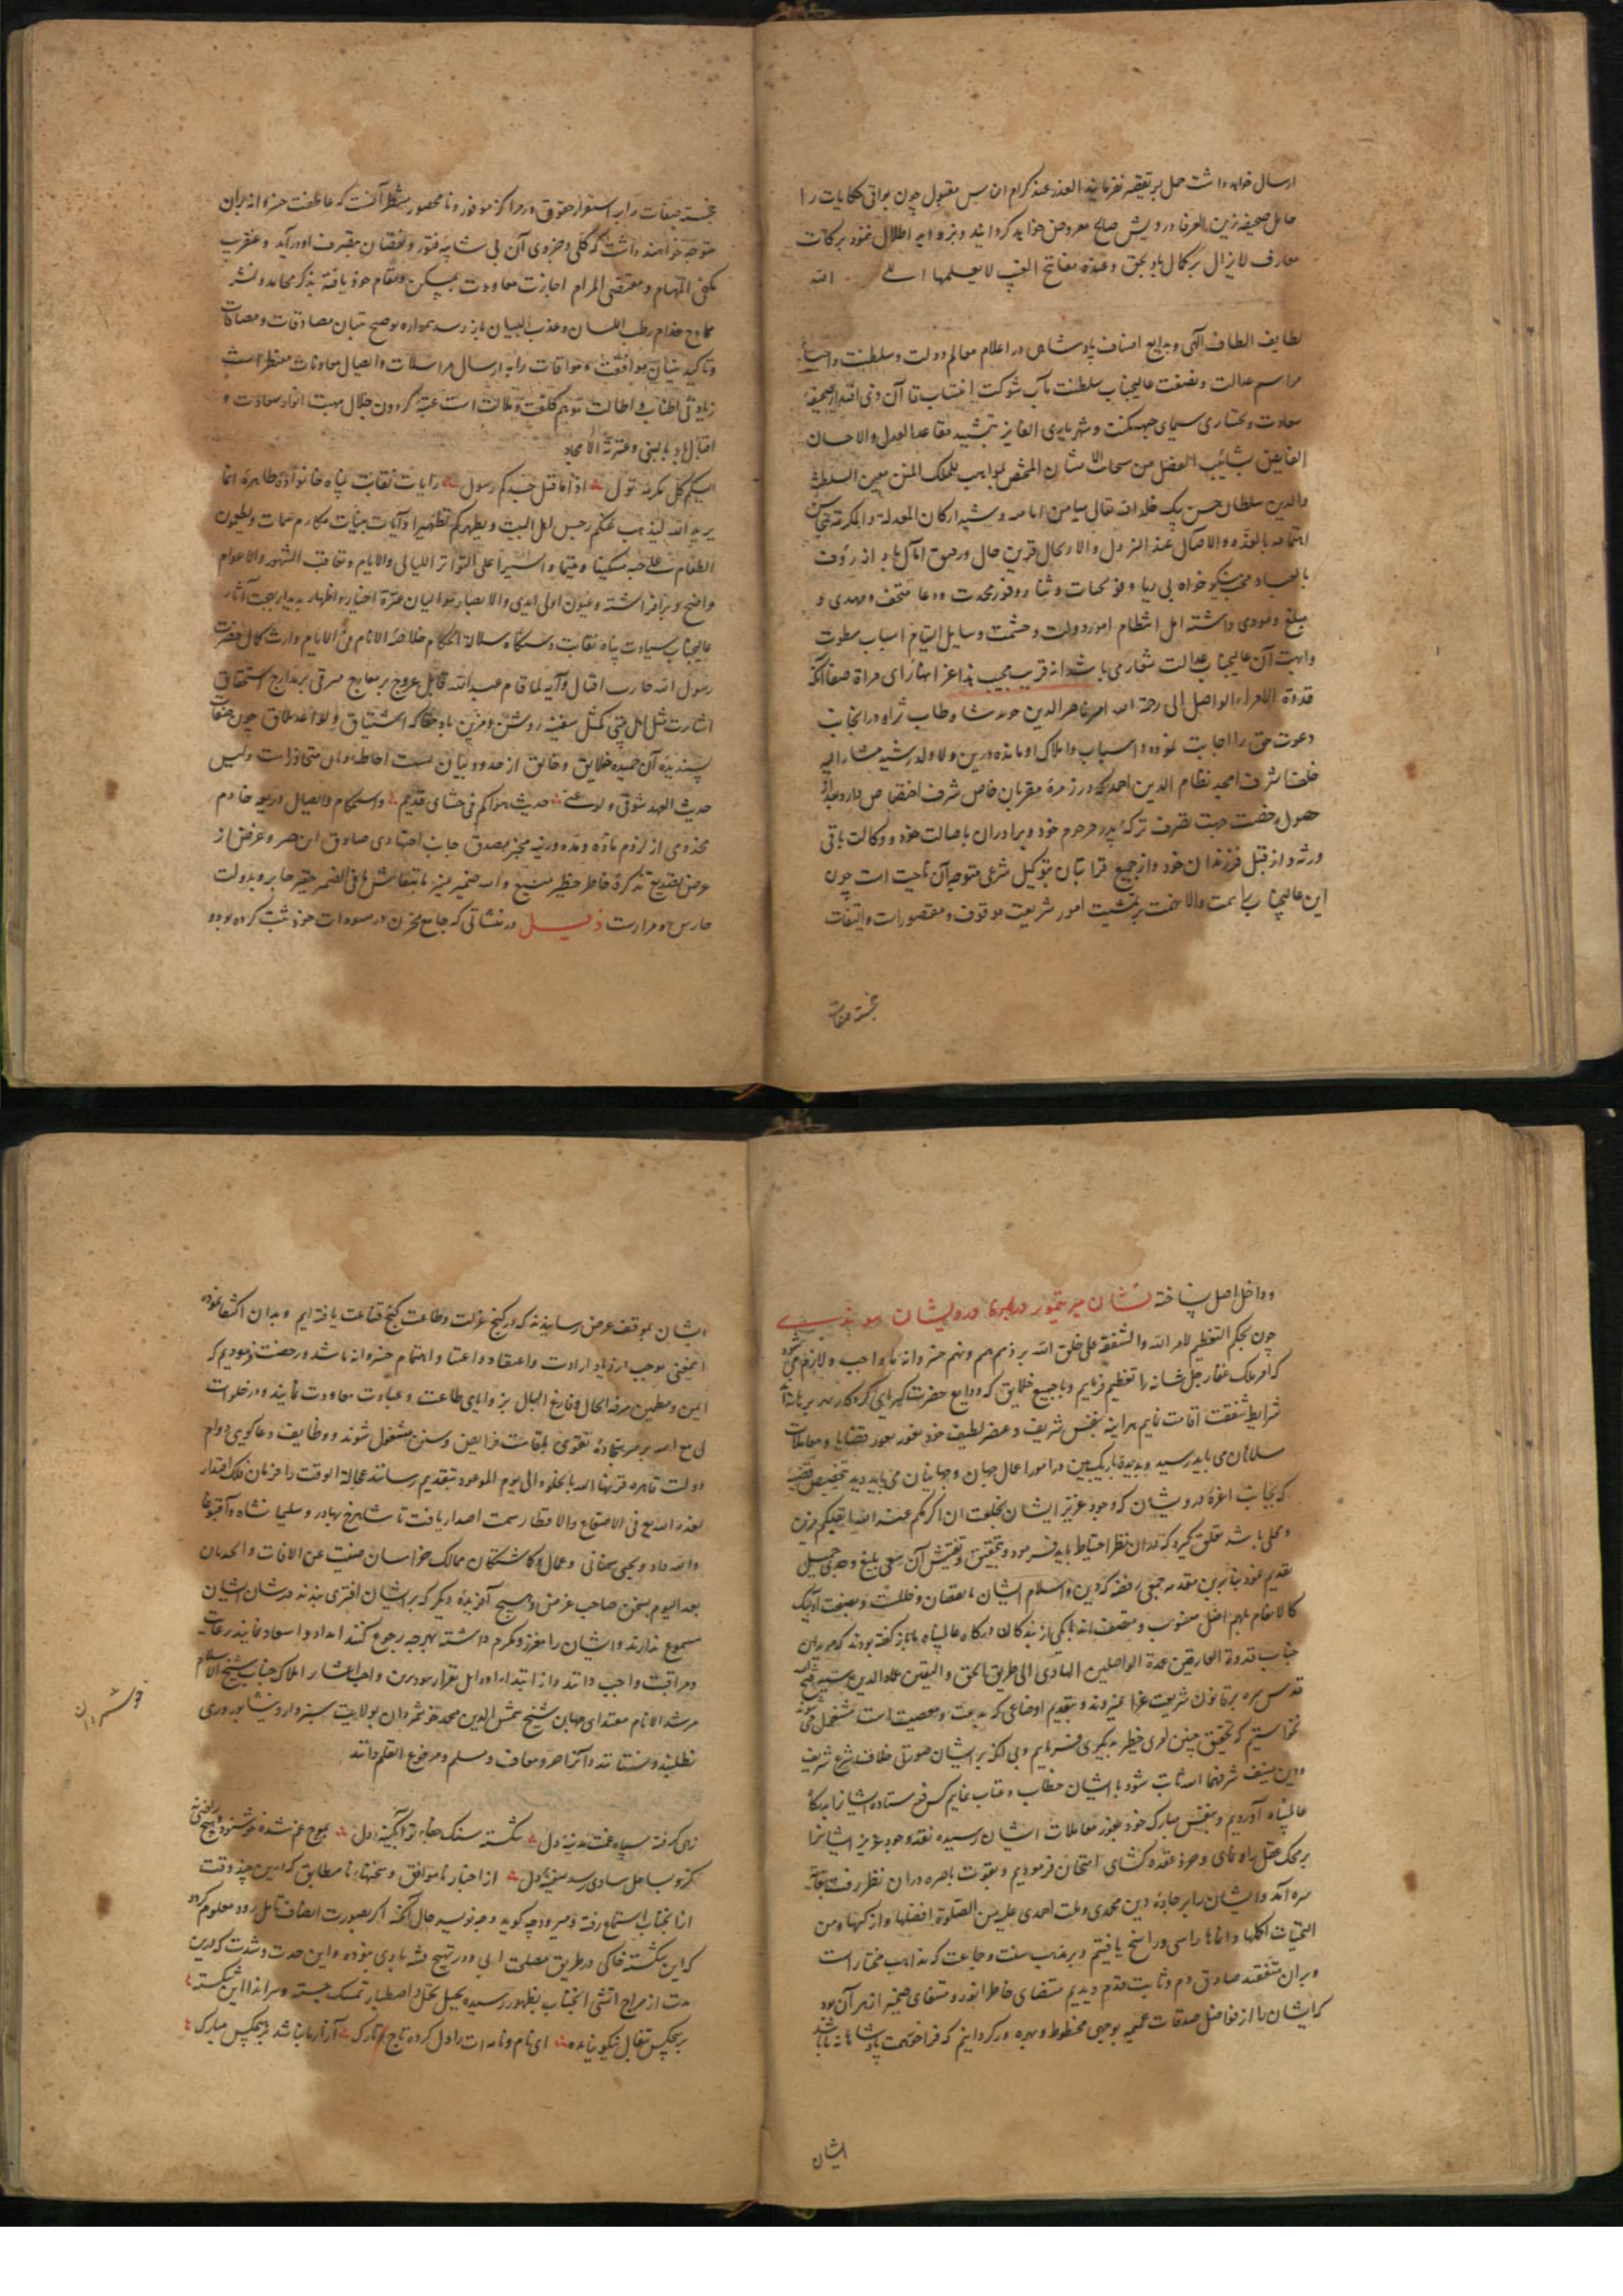 ارسال خواهد داشت حمل بر تقصیر نفرمایند العذر عند کرام الناس مقبول چون بواقی حکایات را
حامل صحیفه زین العرفا درویش صالح معروض خواهد کردانید اطلال نمود برکات
معارف لایزال برکمال باد بحق وعنده مفاتح الغیب لا یعلمها الا الله
لطایف الطاف الهی و بدایع اصناف پادشاهی در اعلام معالم دولت و سلطنت و احیاء
مراسم عدالت و نصفت عالیجناب سلطنت مآب شوکت انتساب آن ذی اقتدار صحیفهٔ
سعادت و بختیاری سیمای جبهه مکنت و شهریاری الفایز بتشیید مقاعد العدل والاحسان
الفایض شآبیب الفضل من سحاب الامتنان المختص بمواهب الملک المنن معین السلطنة
والدین سلطان حسن بیک خلد الله تعالی میامن ایامه وشید ارکان المعدلة والمکرمة بمحاسن
اهتمامه بالغدو والاصال عند النزول والارتحال قرین حال و رفیق آمال باد انه رؤف
بالعباد محب نیکو خواه بی ریا و فوایح تحیات و ثنا و وفور محمدت و دعا متحف و مهدی و
مبلغ و مودی داشته امل انتظام امور دولت و حشمت و سایل التیام اسباب سطوت
وابهت آن عالیجناب عدالت شعار می باشد انه قریب مجیب بذا عز انهاء رای مراة صفا آنکه
قدوة الامراء الواصل الی رحمة الله امیر ناصر الدین خداوند شاه طاب ثراه در انجانب
دعوت حق را اجابت نموده و اسباب و املاک او مانده درین ولا ولد رشید مشار الیه
خلف اشرف امجد نظام الدین احمد که در زمرهٔ مقربان خاص شرف اختصاص دارد بعد از
حصول رخصت جهت تصرف ترکهٔ پدر مرحوم خود و برادران باصالت خود و وکالت باقی
ورثه و از قبل فرزندان خود و از جمیع قرابتان بتوکیل شرعی متوجه آن ناحیت است چون
این عالیجناب را همت والا نهمت بر تمشیت امور شریعت موقوف و مقصور است والتفات
خجسته صفات
خجسته صفات را بر استقرار حقوق در مراکز موفور و نا محصور منتظر آنست که عاطفت خسروانه بران
متوجه خواهند داشت که کلی و جزوی آن بی شایبه فتور و نقصان بتصرف او درآید و عنقریب
مکفی المهام و مقتضی المرام اجازت معاودت بمسکن و مقام خود یافته بذکر محامد و نشر
ممادح خدام رطب اللسان و عذب البیان باز رسد همواره توضیح تبیان مصادقات و مصافات
وتاکید بنیان موافقت و مواخات را به ارسال مراسلات و ایصال معاونات منتظر است
زیادتی اطناب و اطالت موهم کلفت و ملالت است عتبهٔ کردون جلال مهبط انوار سعادت و
اقبال باد بالنبی وعترته الامجاد
الیکم کل مکرمة تؤل اذا ما قیل جدکم رسول رایات نقابت پناه خانوادهٔ طاهره انما
یرید الله لیذهب عنکم رجس اهل البیت ویطهرکم تطهیرا و آیات بینات مکارم سمات ویطعمون
الطعام علی حبه مسکینا ویتیما واسیرا علی التواتر اللیالی والایام و تعاقب الشهور والاعوام
واضح و برافراشته و عیون اولی الایدی والابصار موالیان عترة اخیار و اظهار بدیدار بهجت آثار
عالیجناب سیادت پناه نقابت دستکاه سلالة الحکام خلاصة الانام فی الایام وارث کمال حضرت
رسول الله حارب اقبال و آیه لما قام عبد الله قابل عروج بر معارج مرقی بر مدارج استحقاق
اشارت مثل اهل بیتی کمثل سفینة روشن و مزین باد حقا که اشتیاق و لواعج تلاق چون صفات
پسندیده آن حمیده خلایق و خالق از حدود بیان نیست احاطه و مان متجاوز است ولیس
حدیث العهد شوقی ولوعتی حدیث هواکم فی حشای قدیم و استحکام و اتصال دریعه خادم
مخدومی از لزوم ماده و مدد ورنیه مخبر بصدق جانب اجتهادی صادق این حصر و غرض از
عرض تصدیع تذکره خاطر خطیر منیع و از ضمیر منیر ما بتفا ش ما فی الضمیر حقیر صابر و بدولت
حارس و مدارست ذیل در نشانی که جامع مخزن در مسودات خود ثبت کرده بود و
و داخل اصل ساخته نشان میر تیمور دربارهٔ درویشان
چون بحکم التعظیم لامر الله والشفقة علی خلق الله بر ذمم همم و نهم خسروانهٔ ما واجب و لازم می شود
که امر ملک غفار جل شانه را تعظیم فرماییم و با جمیع خلایق که ودایع حضرت کبریای کردکارند بر ما انا
شرایط شفقت اقامت نماییم هراینه بنفس شریف و عنصر لطیف خود بغور قضایا و معاملات
مسلمانان می باید رسید و بدیده باریک بین در امور اعمال جهان و جهانیان می باید دید بتخصیص قضیه
که بجانب اعزهٔ درویشان که وجود عزیز ایشان بخلعت ان اکرمکم عند الله اتقیکم مزین
و محلی باشد تعلق کیرد که در ان نظر احتیاط باید فرمود و بتحقیق و تفتیش آن سعی بلیغ و جدی جمیل
بتقدیم نمود بنابرین مقدمه جمعی رفضه که دین و اسلام ایشان بنقصان و خلل و بصفت اولئک
کالانعام بل هم اضل منسوب و متصف اند با یکی از بندکان درکاه عالمپناه ما باز گفته بودند که مریدان
جناب قدوة العارفین عمدة الواصلین الهادی الی طریق الحق والیقین عماد الدین سید فتح الله
قدس سره بر قانون شریعت غرا نمیروند و بتقدیم اوضاعی که بدعت و معصیت است مشغول می شوند
نخواستیم که تحقیق چنین امری خطیر به دیکری فرماییم و بی آنکه بر ایشان صورتی خلاف شرع شریف
ودین منیف شرفهما الله ثابت شود با ایشان خطاب و عتاب نماییم کس فرستاده ایشانرا بدرکاه
عالمپناه آوردیم و بنفس مبارک خود بغور معاملات ایشان رسیده نقد وجود عزیز ایشانرا
بر محک عقل راه نمای و خرد عقده کشای امتحان فرمودیم و بقوت باصره در ان نظر رفت بغایت
سره آمد و ایشان را بر جادهٔ دین محمدی و ملت احمدی علیه من الصلوة افضلها و ازکیها و من
التحیات اکملها و انماها راسی و راسخ یافتیم و بر مذهب سنت و جماعت که مذاهب مختار است
و بر ان متفقند صادق دم و ثابت قدم دیدیم مقتضای خاطر انور و مقتضای ضمیر از هر آن بود
که ایشان را از فواضل صدقات عمیمه بوجهی محظوظ و بهره ور کردانیم که فراخور همت پادشاهانه ما باشد
ایشان
ایشان بموقف عرض رسانیدند که در کنج عزلت و طاعت کنج قناعت یافته ایم و بدان اکتفا نموده
اینمعنی موجب ازدیاد ارادت و اعتقاد و اعتنا و اهتمام خسروانه ما شد و رخصت فرمودیم که
ایمن و مطمئن مرفه الحال و فارغ البال بزوایای طاعت و عبادت معاودت نمایند و در خلوات
لی مع الله بر سر سجادهٔ تقوی باقامت فرایض و سنن مشغول شوند و وظایف دعا کویی دوام
دولت قاهره قرنها الله بالخلود الی یوم الموعود بتقدیم رسانند عجالة الوقت را فرمان فلک اقتدار
لنفذه الله تع فی الاصقاع والاقطار سمت اصدار یافت تا شاهرخ بهادر و سلیمانشاه و آقبوغا
والله داد و یحیی سمنانی و عمال و کماشتکان ممالک خراسان صینت عن الافات والحدثان
بعد الیوم بسخن صاحب غرض و هیچ آفریدهٔ دیکر که بر ایشان افتری بندند در شان ایشان
مسموع ندارند و ایشان را معزز و مکرم داشته بهر چه رجوع کنند امداد و اسعاد نمایند رعایت
و مراقبت واجب دانند و از ابتداء اودایل بقرار معهود برین واجبات اعشار املاک جناب شیخ الاسلام
مرشد الانام مقتدای جهان شیخ شمس الدین محمد خوشمردان بولایت سبزوار و نیشابور وری
نطلبند و نستانند و آنرا حر و معاف و مسلم و مرفوع القلم دانند
خوشمردان
زهی کرفته سپاه غمت مدینهٔ دل شکسته سنک جفاء تو آبکینهٔ دل بموج غم شده خوشنود و هیچ
نکرد بساحل شادی رسد سفینهٔ دل از اخبار ناموافق و سخنهای نا مطابق که درین چند وقت
از انجناب استماع رفته و میرود چه کوید و چه نویسد حال آنکه اکر بصورت انصاف تامل رود معلوم کردد
که این شکسته خاکی در طریق مصلحت ابی و در تهییج فتنه بادی نبوده و این حدت و شدت که درین
مدت از مزاج اتشی انجناب بظهور رسیده بحیل تحمل و اصطبار تمسک جسته و سر ایذا این شکسته
بر هیچکس تفال نیکو نیامده ای نام و نامه ات را دل کرده تاج تارک آزار ما نباشد بر هیچکس مبارک